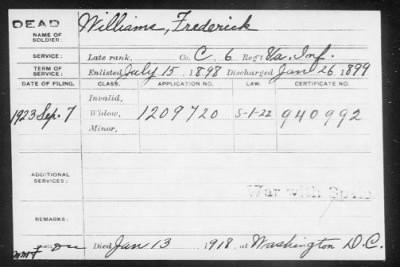 DEAD
Williams, Frederick
NAME OF
SOLDIER:
SERVICE: Late rank, Co. C, 6 Reg't Va. Inf.
TERM OF
SERVICE: Enlisted July 15, 1898 Discharged Jan 26, 1899
DATE OF FILING. CLASS. APPLICATION NO. LAW. CERTIFICATE NO.
Invalid,
1923 Sep. 7 Widow, 1209720 5-1-22 940992
Minor,
ADDITIONAL
SERVICES:
War with Spain
REMARKS:
Died Jan 13, 1918, at Washington D.C.